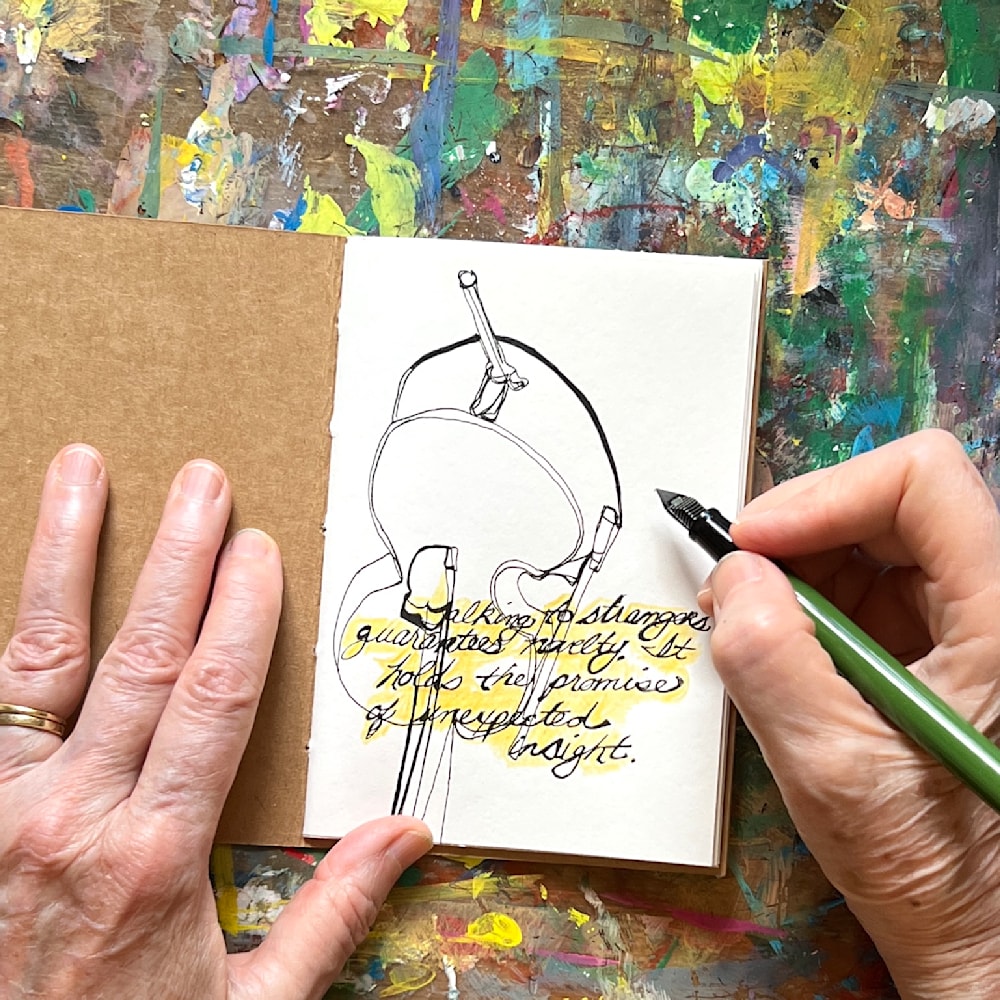 Talking to strangers
guarantees novelty. It
holds the promise
of unexpected
insight.